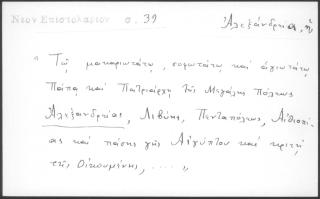 Νεον Επιστολαριον σ. 39
Ἀλεξάνδρεια, ἡ
" Τῷ μακαριωτάτῳ, σοφωτάτῳ καὶ ἁγιωτάτῳ
Πάπᾳ καὶ Πατριάρχῃ τῆς Μεγάλης Πόλεως
Ἀλεξανδρείας, Λιβύης, Πενταπόλεως, Αἰθιοπί-
ας καὶ πάσης γῆς Αἰγύπτου καὶ κριτῇ
τῆς Οἰκουμένης, .... "